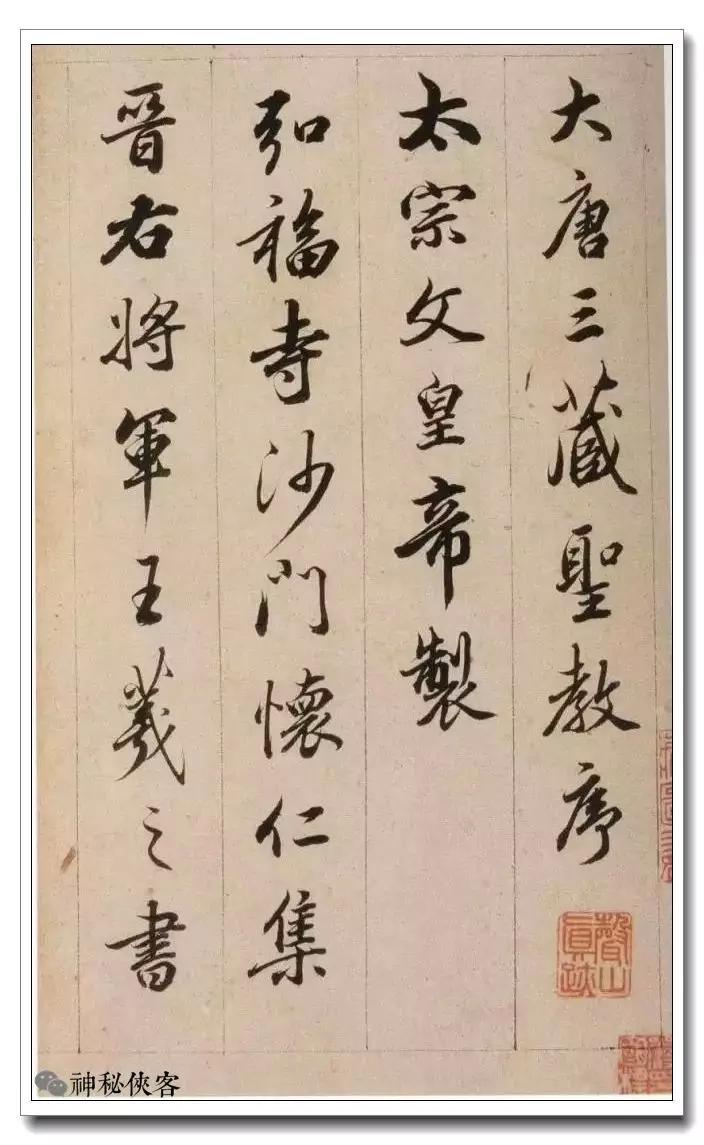 大唐三藏聖教序
太宗文皇帝製
弘福寺沙門懷仁集
晉右將軍王羲之書
神秘俠客